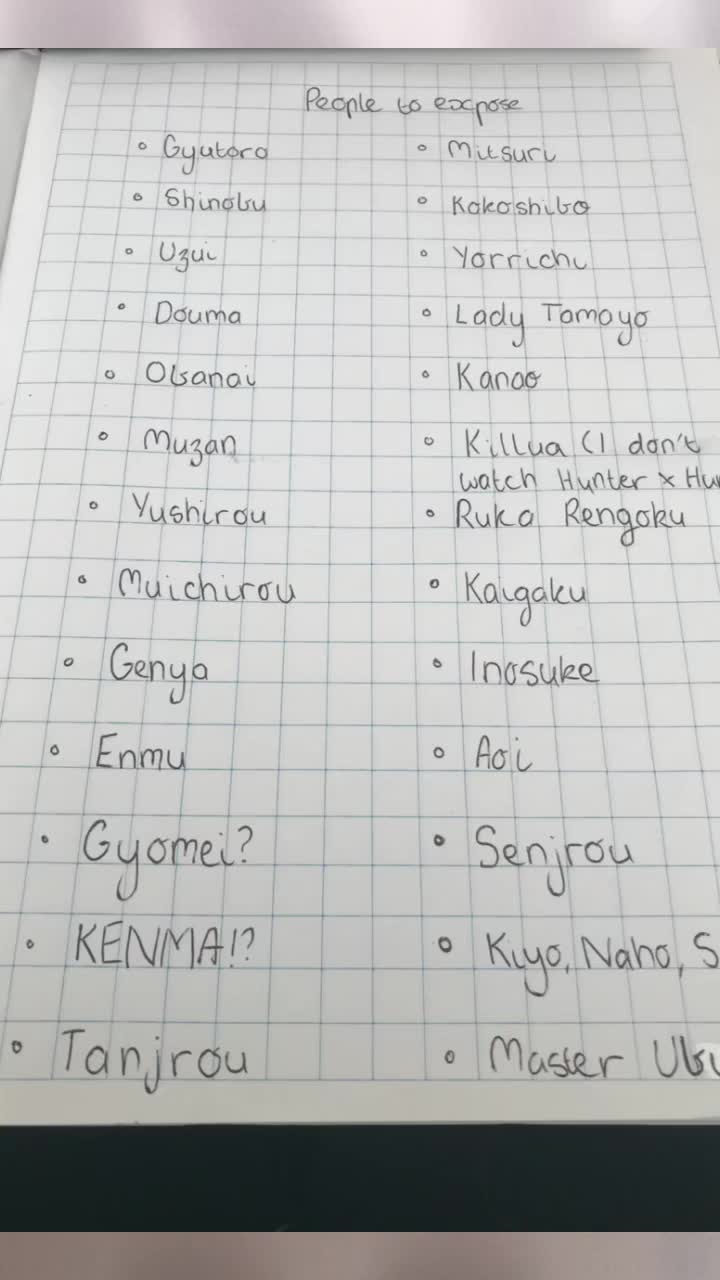 People to expose
• Gyutaro
• Shinobu
• Uzui
• Douma
• Obanai
• Muzan
• Yushirou
• Muichirou
• Genya
• Enmu
• Gyomei?
• KENMA!?
• Tanjrou
• Mitsuri
• Kokoshibo
• Yorrichi
• Lady Tamayo
• Kanao
• Killua (I don't
watch Hunter x Hu
• Ruka Rengoku
• Kaigaku
• Inosuke
• Aoi
• Senjrou
• Kiyo, Naho, S
• Master Ubu